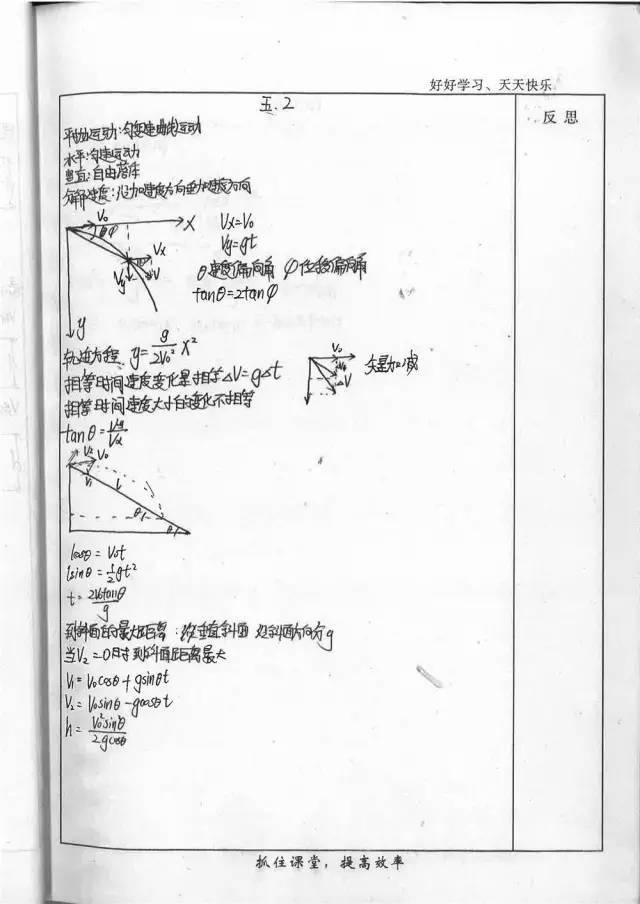 好好学习、天天快乐
五.2
反思
平抛运动:匀变速曲线运动
水平:匀速运动
竖直:自由落体
分解速度:沿加速度方向垂加速度方向
V₀ X
θ φ
Vx
Vy V
y
Vx=V₀
Vy=gt
θ速度偏向角 φ位移偏向角
tanθ=2tanφ
轨迹方程 y=g/2V₀² X²
相等时间速度变化量相等△V=g△t
相等时间速度大小的变化不相等
V₀
△V
矢量加减
tanθ=Vy/Vx
V₂ V₀
V₁ l
θ
θ
lcosθ=V₀t
lsinθ=1/2gt²
t=2V₀tanθ/g
到斜面的最大距离:沿垂直斜面 沿斜面方向分g
当V₂=0时到斜面距离最大
V₁=V₀cosθ+gsinθt
V₂=V₀sinθ-gcosθt
h=V₀²sin²θ/2gcosθ
抓住课堂,提高效率